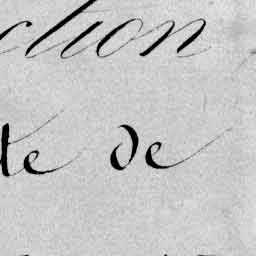 ction
te de